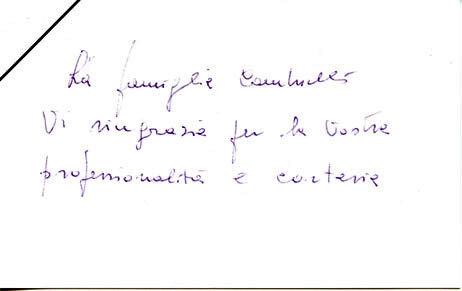 La famiglia
Vi ringrazia per la Vostra
professionalità e cortesia